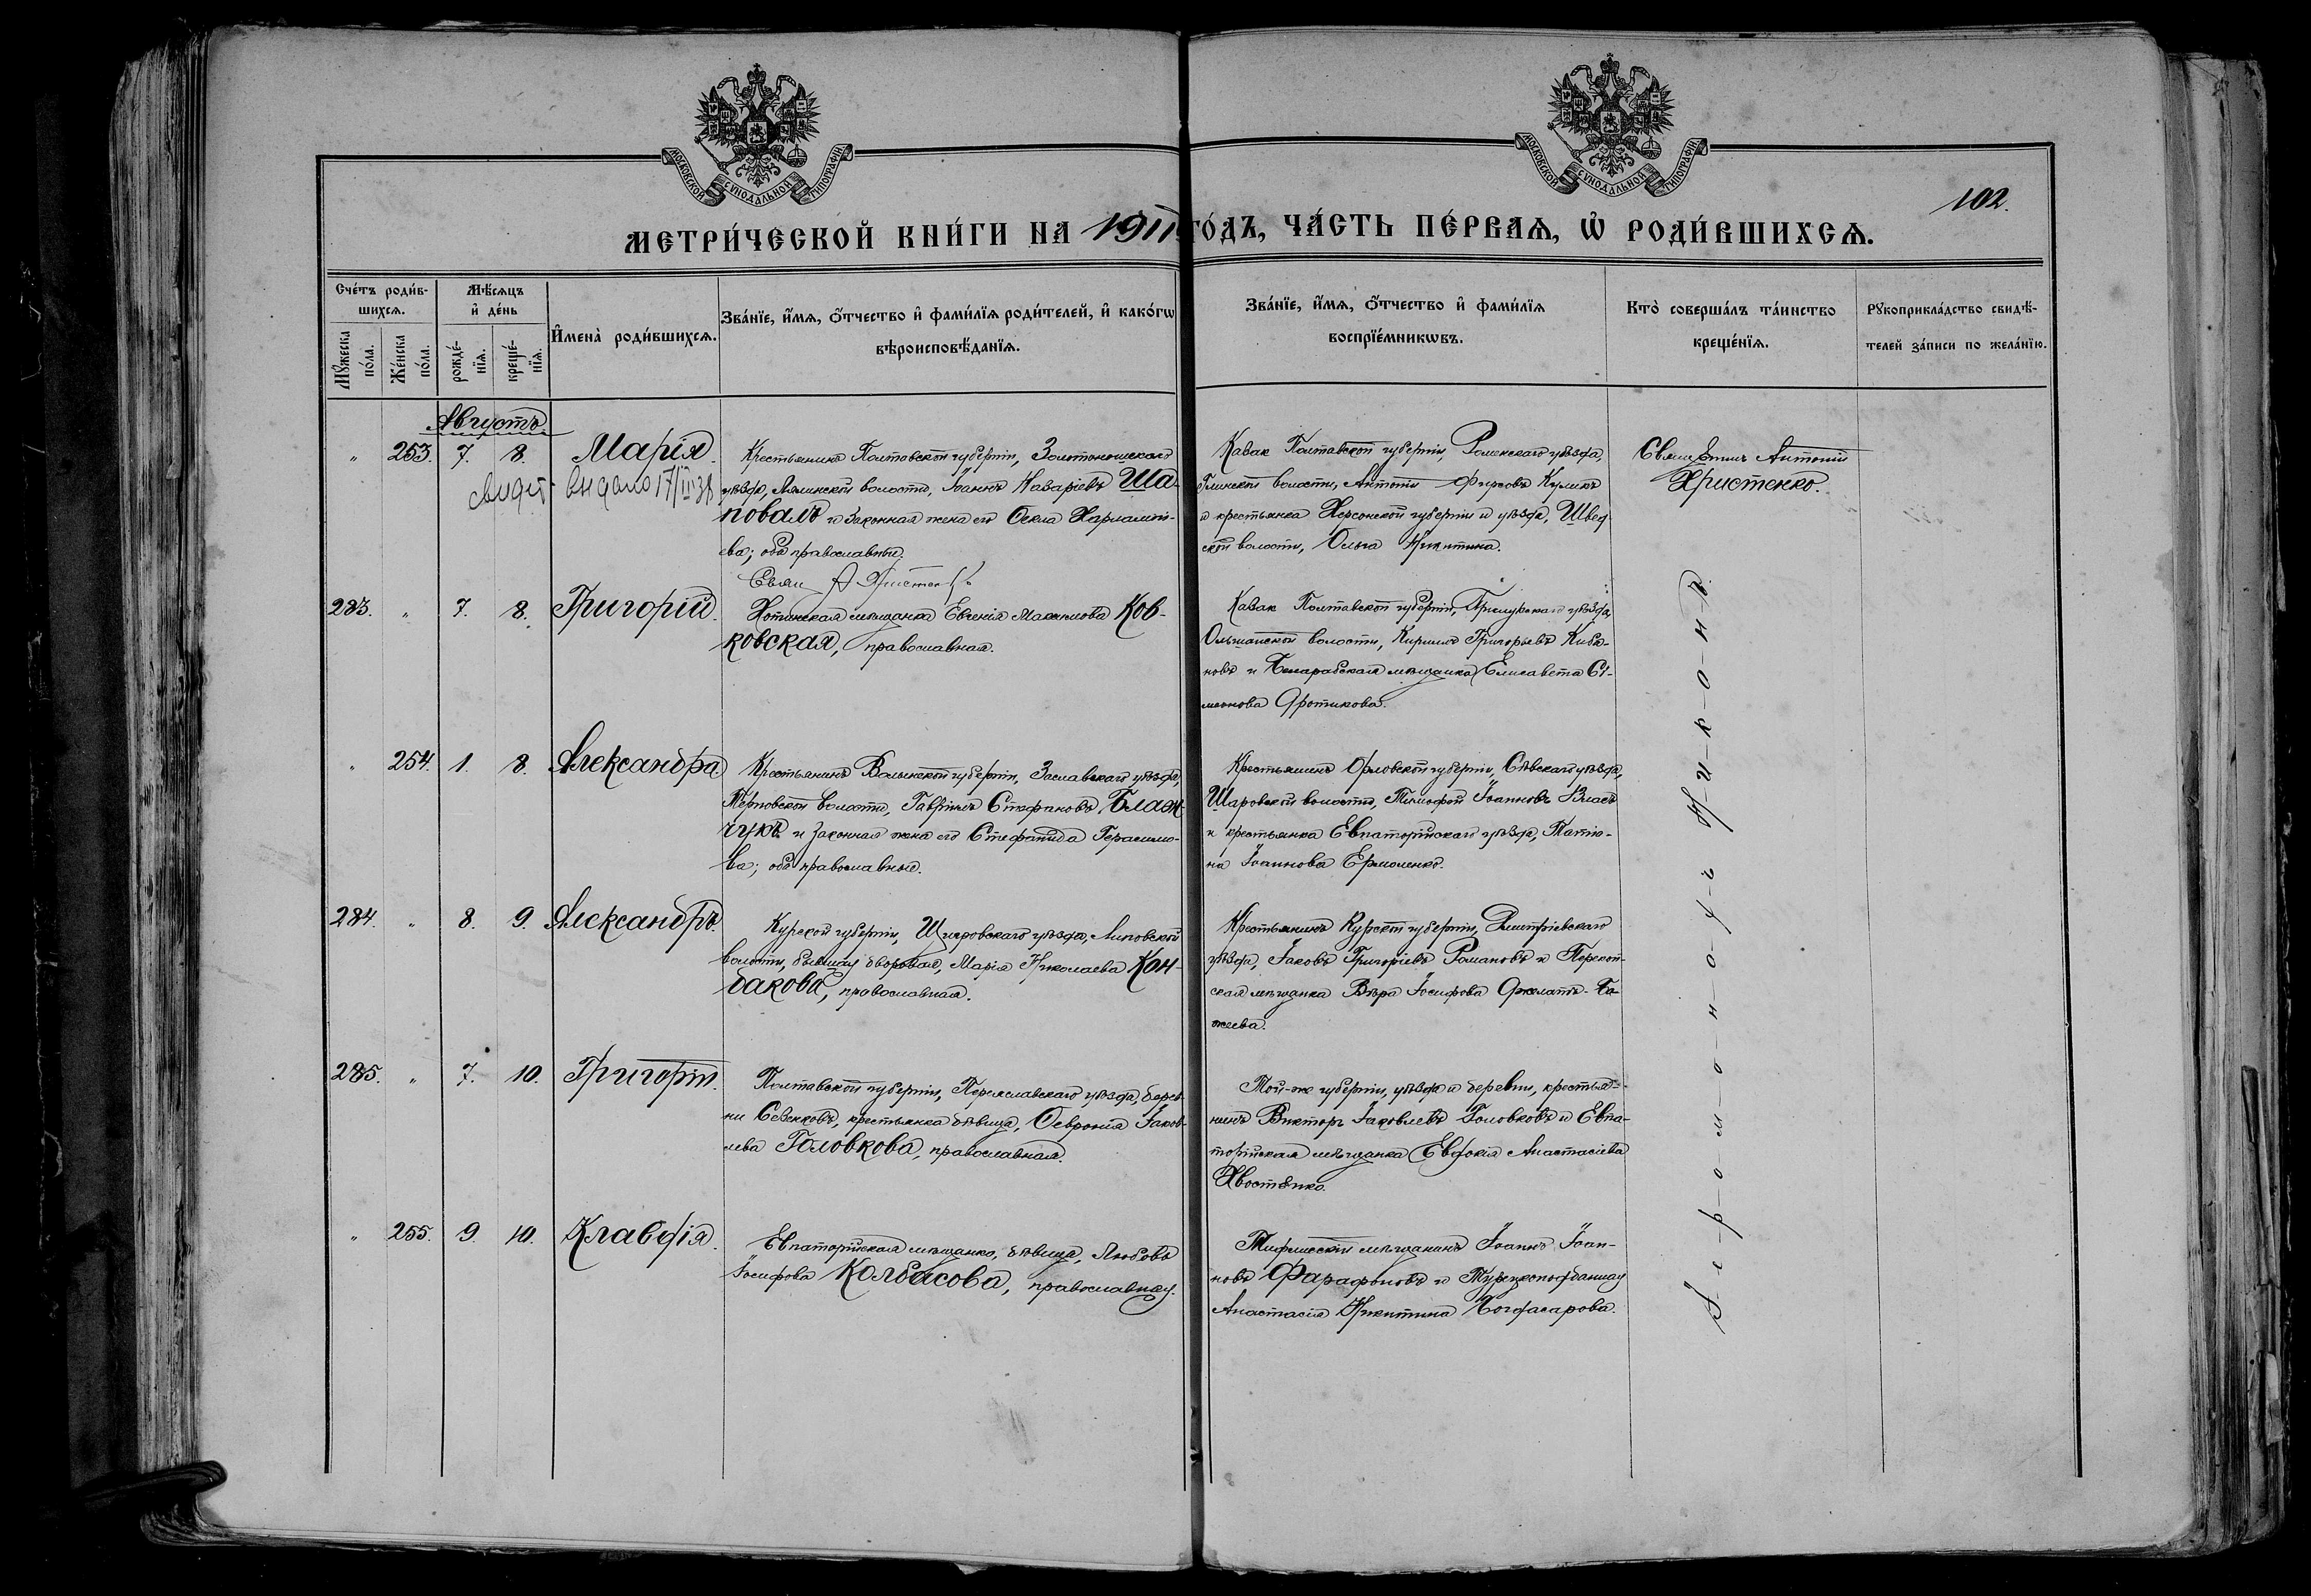 МОСКОВСКОЙ СѴНОДАЛЬНОЙ ТИПОГРАФІИ
МОСКОВСКОЙ СѴНОДАЛЬНОЙ ТИПОГРАФІИ
102.
МЕТРИ́ЧЕСКОЙ КНИ́ГИ НА 1911 ГО́ДЪ, ЧА́СТЬ ПЕ́РВАѦ, Ѡ РОДИ́ВШИХСѦ.
Сче́тъ роди́в-
шихсѧ.
Мꙋжеска по́ла.
Же́нска по́ла.
Мѣ́сѧцъ
и҆ де́нь
рожде́-
нїѧ.
креще́-
нїѧ.
И҆мена̀ роди́вшихсѧ.
Зва́нїе, и҆́мѧ, ѻ҆́тчество и҆ фами́лїѧ роди́телей, и҆ како́гѡ
вѣроисповѣ́данїѧ.
Зва́нїе, и҆́мѧ, ѻ҆́тчество и҆ фами́лїѧ
воспрїе́мникѡвъ.
Кто̀ соверша́лъ та́инство
креще́нїѧ.
Рꙋкоприкла́дство свидѣ́-
телей за́писи по жела́нїю.
Августъ.
„ 253. 7. 8. Марія.
свидет выдано 17/III 38
Крестьянинъ Полтавской губерніи, Золотоношскаго
уѣзда, Лялинской волости, Іоаннъ Назаріевъ Ша-
повалъ и законная жена его Ѳекла Харлампіе-
ва; оба православные.
Свящ А Христенко
Казак Полтавской губерніи, Роменскаго уѣзда,
Глинской волости, Антоній Фирсовъ Куликъ
и крестьянка Херсонской губерніи и уѣзда, Швед-
ской волости, Ольга Никитина.
Священникъ Антоній
Христенко.
283. „ 7. 8. Григорій.
Хотинская мѣщанка Евгенія Максимова Ков-
ковская, православная.
Казак Полтавской губерніи, Прилукскаго уѣзда,
Ольшанской волости, Кириллъ Григорьевъ
новъ и Бессарабская мѣщанка Елисавета Си-
меонова
„ 254. 1. 8. Александра.
Крестьянинъ Волынской губерніи, Заславскаго уѣзда,
волости, Гавріилъ Стефановъ Блаж-
чукъ и законная жена его Стефанида Герасимо-
ва; оба православные.
Крестьянинъ Орловской губерніи, Сѣвскаго уѣзда,
Шаровской волости, Тимофей Іоанновъ Власъ
и крестьянка Евпаторійскаго уѣзда, Татія-
на Іоаннова Ермоленко.
284. „ 8. 9. Александръ.
Курской губерніи, Щигровскаго уѣзда, Липовской
волости, бывшая дворовая, Марія Николаева Кон-
дакова, православная.
Крестьянинъ Курской губерніи, Дмитріевскаго
уѣзда, Іаковъ Григоріевъ Романовъ и Перекоп-
ская мѣщанка Вѣра Іосифова
жеева.
285. „ 7. 10. Григорій.
Полтавской губерніи, Переяславскаго уѣзда, дерев-
ни Севенковъ, крестьянка дѣвица, Ѳевронія Іаков-
лева Головкова, православная.
Той-же губерніи, уѣзда и деревни, крестья-
нинъ Викторъ Іаковлевъ Головковъ и Евпа-
торійская мѣщанка Евдокія Анастасіева
Хвостенко.
„ 255. 9. 10. Клавдія.
Евпаторійская мѣщанка, дѣвица, Любовь
Іосифова Колбасова, православная.
Тифлисскій мѣщанинъ Іоаннъ Іоан-
новъ Фарафоновъ и Турецкоподданная
Анастасія Никитина Богдасарова.
І-е-р-о-м-о-н-а-х-ъ Н-и-к-о-н-ъ.